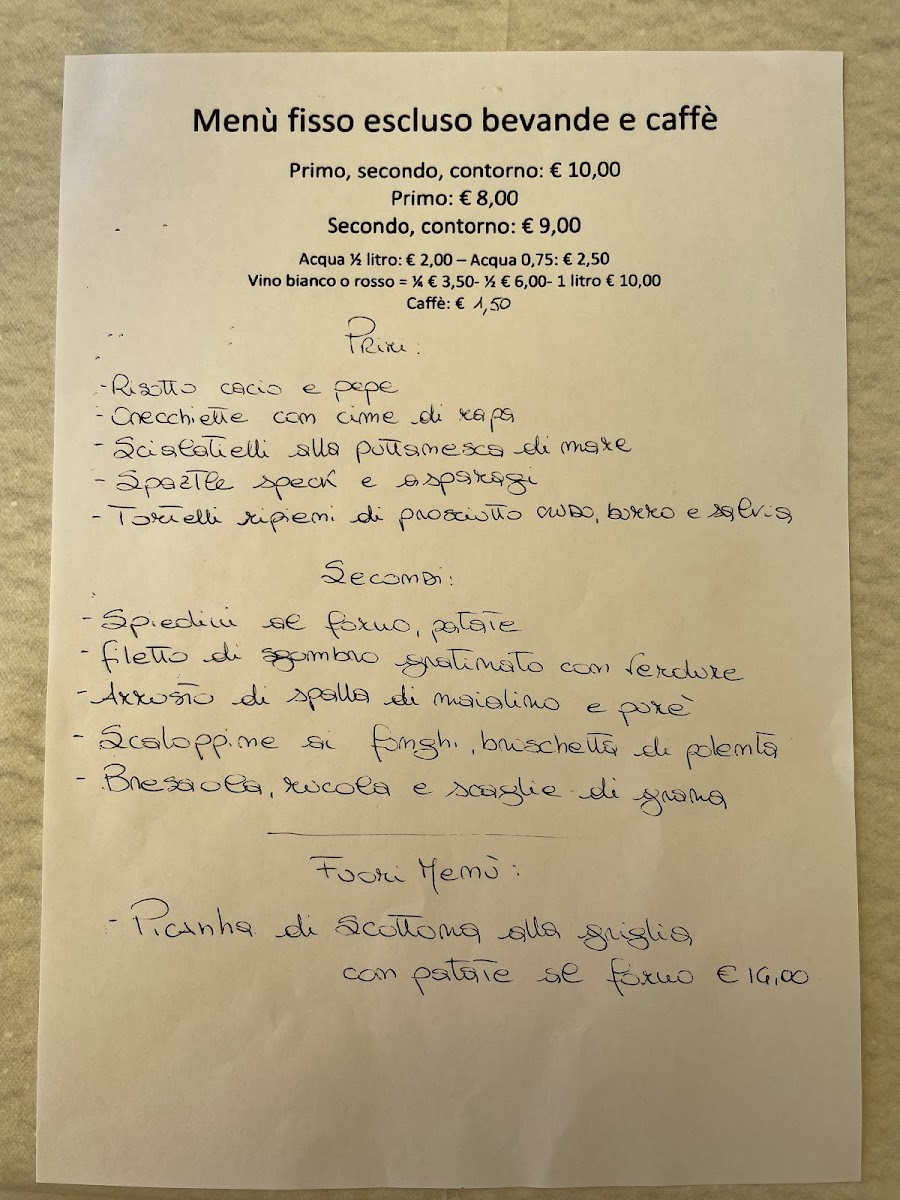 Menù fisso escluso bevande e caffè
Primo, secondo, contorno: € 10,00
Primo: € 8,00
Secondo, contorno: € 9,00
Acqua ½ litro: € 2,00 – Acqua 0,75: € 2,50
Vino bianco o rosso = ¼ € 3,50- ½ € 6,00- 1 litro € 10,00
Caffè: € 1,50
Primi:
- Risotto cacio e pepe
- Orecchiette con cime di rapa
- Scialatielli alla puttanesca di mare
- Spaztle speck e asparagi
- Tortelli ripieni di prosciutto crudo, burro e salvia
Secondi:
- Spiedini al forno, patate
- filetto di sgombro gratinato con verdure
- Arrosto di spalla di maialino e purè
- Scaloppine ai funghi, bruschetta di polenta
- Bresaola, rucola e scaglie di grana
Fuori Menù:
- Picanha di Scottona alla griglia
con patate al forno €